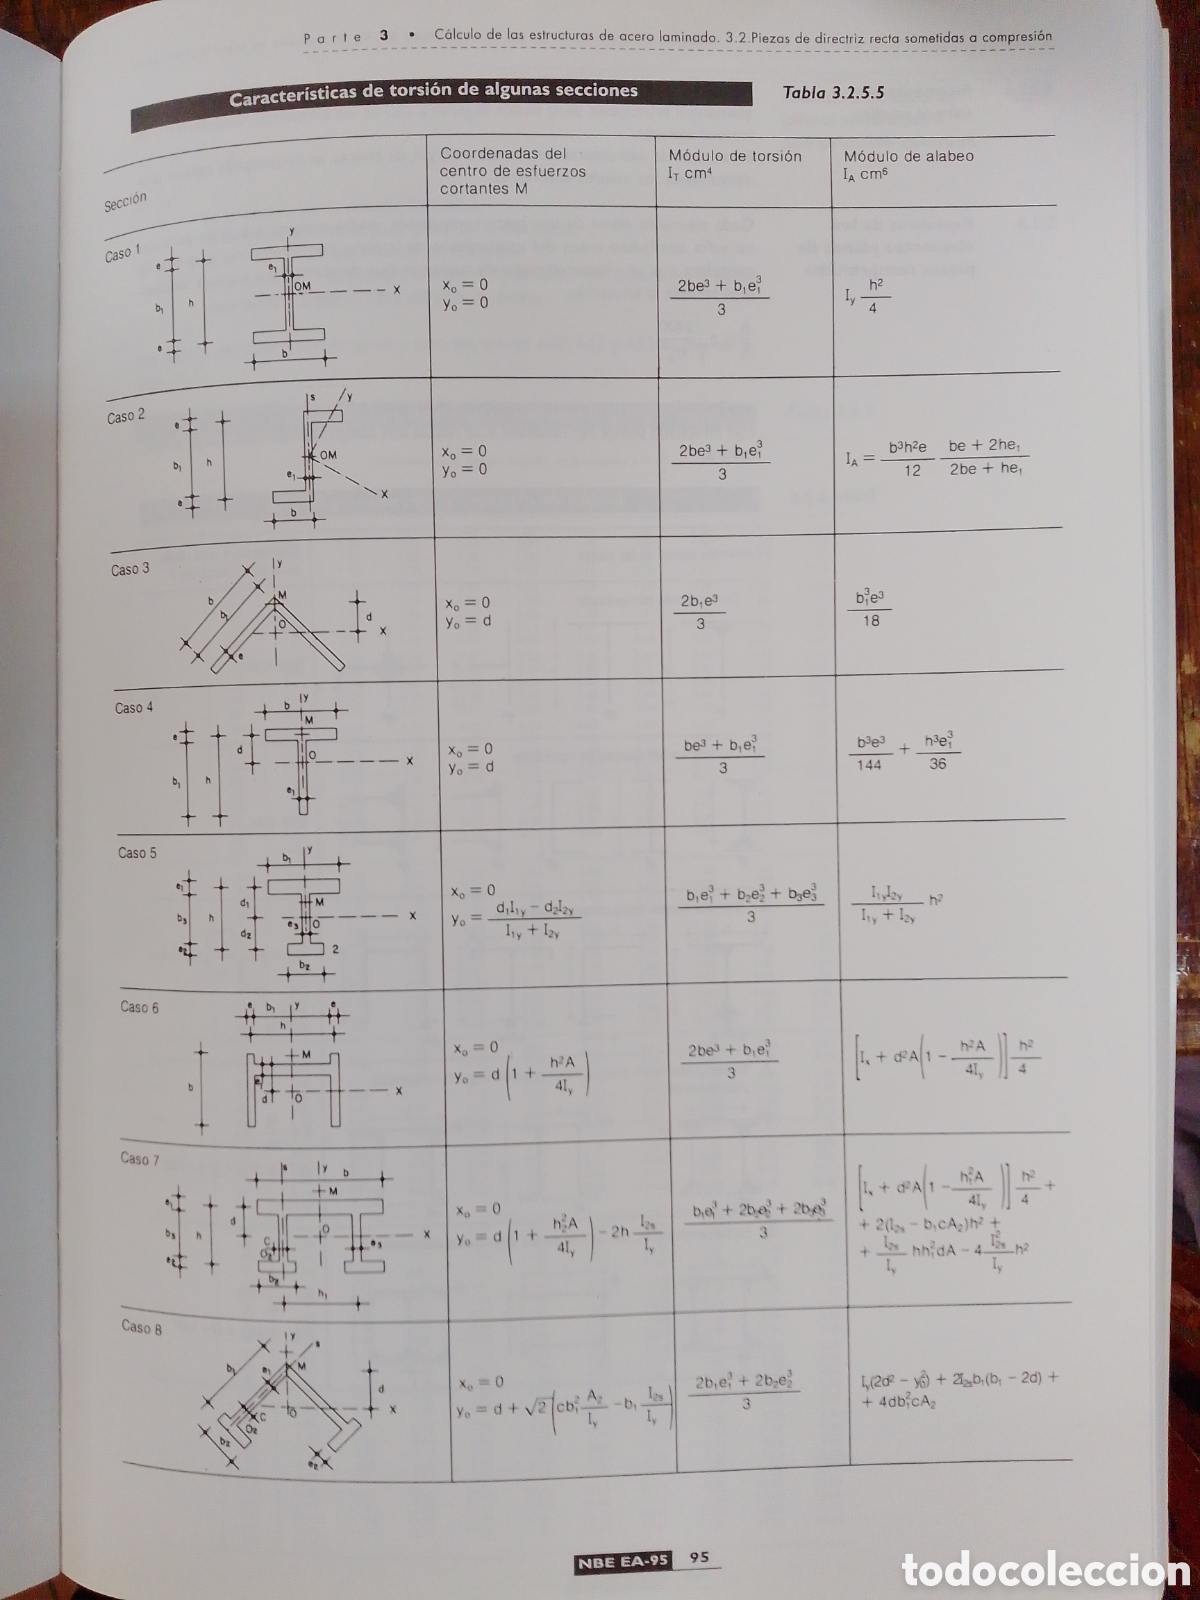 Parte 3 • Cálculo de las estructuras de acero laminado. 3.2.Piezas de directriz recta sometidas a compresión
Características de torsión de algunas secciones
Tabla 3.2.5.5
Sección
Coordenadas del
centro de esfuerzos
cortantes M
Módulo de torsión
I_T cm⁴
Módulo de alabeo
I_A cm⁶
Caso 1
e b₁ e h y e₁ OM x b
x₀ = 0
y₀ = 0
(2be³ + b₁e₁³) / 3
I_y h² / 4
Caso 2
e b₁ e h s y OM e₁ x b
x₀ = 0
y₀ = 0
(2be³ + b₁e₁³) / 3
I_A = b³h²e / 12 (be + 2he₁) / (2be + he₁)
Caso 3
b b₁ e y M O d x
x₀ = 0
y₀ = d
2b₁e³ / 3
b₁³e³ / 18
Caso 4
e b₁ h d b y M O x e₁
x₀ = 0
y₀ = d
(be³ + b₁e₁³) / 3
b³e³ / 144 + h³e₁³ / 36
Caso 5
e₁ b₃ e₂ h d₁ d₂ b₁ y M O x e₃ 2 b₂
x₀ = 0
y₀ = (d₁I₁y − d₂I₂y) / (I₁y + I₂y)
(b₁e₁³ + b₂e₂³ + b₃e₃³) / 3
I₁yI₂y / (I₁y + I₂y) h²
Caso 6
e b₁ y e h M b e₁ d O x
x₀ = 0
y₀ = d (1 + h²A / 4I_y)
(2be³ + b₁e₁³) / 3
[I_x + d²A(1 − h²A / 4I_y)] h² / 4
Caso 7
e₁ b₃ e₂ h d s y b M O x C O₂ e₃ b₂ h₁
x₀ = 0
y₀ = d (1 + h₂²A / 4I_y) − 2h I₂s / I_y
(b₁e₁³ + 2b₂e₂³ + 2b₃e₃³) / 3
[I_x + d²A(1 − h₁²A / 4I_y)] h² / 4 +
+ 2(I₂s − b₁cA₂)h² +
+ I₂s / I_y hh₁²dA − 4 I₂s² / I_y h²
Caso 8
b₁ e₁ y s M d O x C O₂ b₂ e₂
x₀ = 0
y₀ = d + √2 (cb₁² A₂ / I_y − b₁ I₂s / I_y)
(2b₁e₁³ + 2b₂e₂³) / 3
I_y(2d² − y₀²) + 2I₂sb₁(b₁ − 2d) +
+ 4db₁²cA₂
NBE EA-95 95
todocoleccion